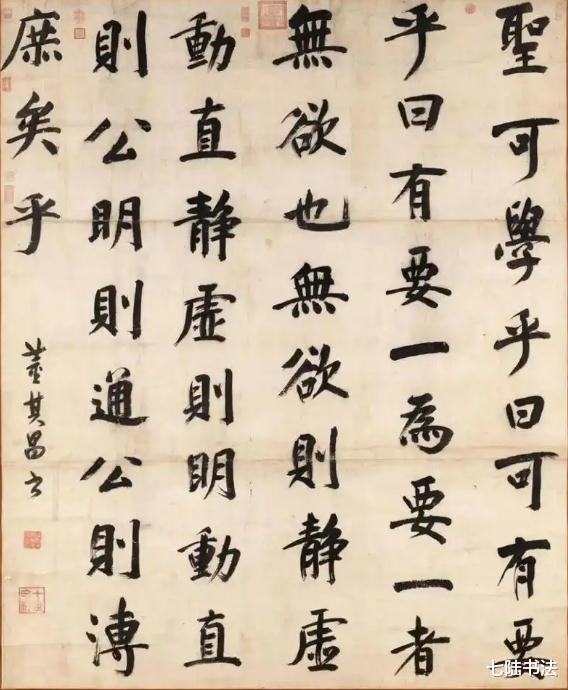 聖可學乎曰可有要
乎曰有要一為要一者
無欲也無欲則靜虛
動直靜虛則明動直
則公明則通公則溥
庶矣乎
董其昌書
七陆书法